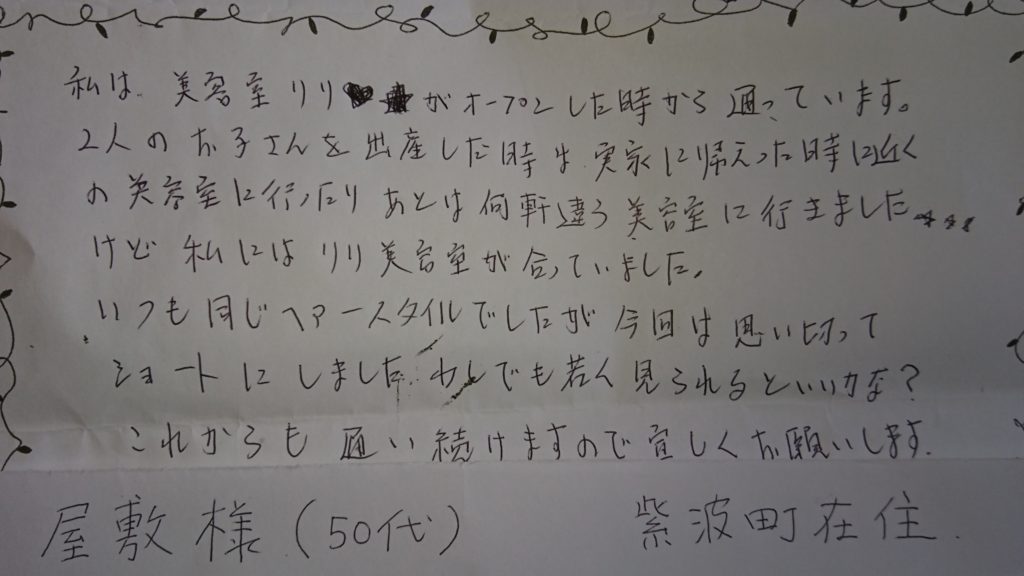 私は 美容室 リリ が オープンした時から 通っています。
2人の お子さんを 出産した時は 実家に帰えった時に近く
の美容室に行ったり あとは何軒違う美容室に行きました
けど 私には リリ美容室が 合っていました。
いつも同じヘアースタイルでしたが 今回は 思い切って
ショートに しました 少しでも若く 見られるといいかな?
これからも 通い続けますので宜しくお願いします.
屋敷様 (50代) 紫波町在住.